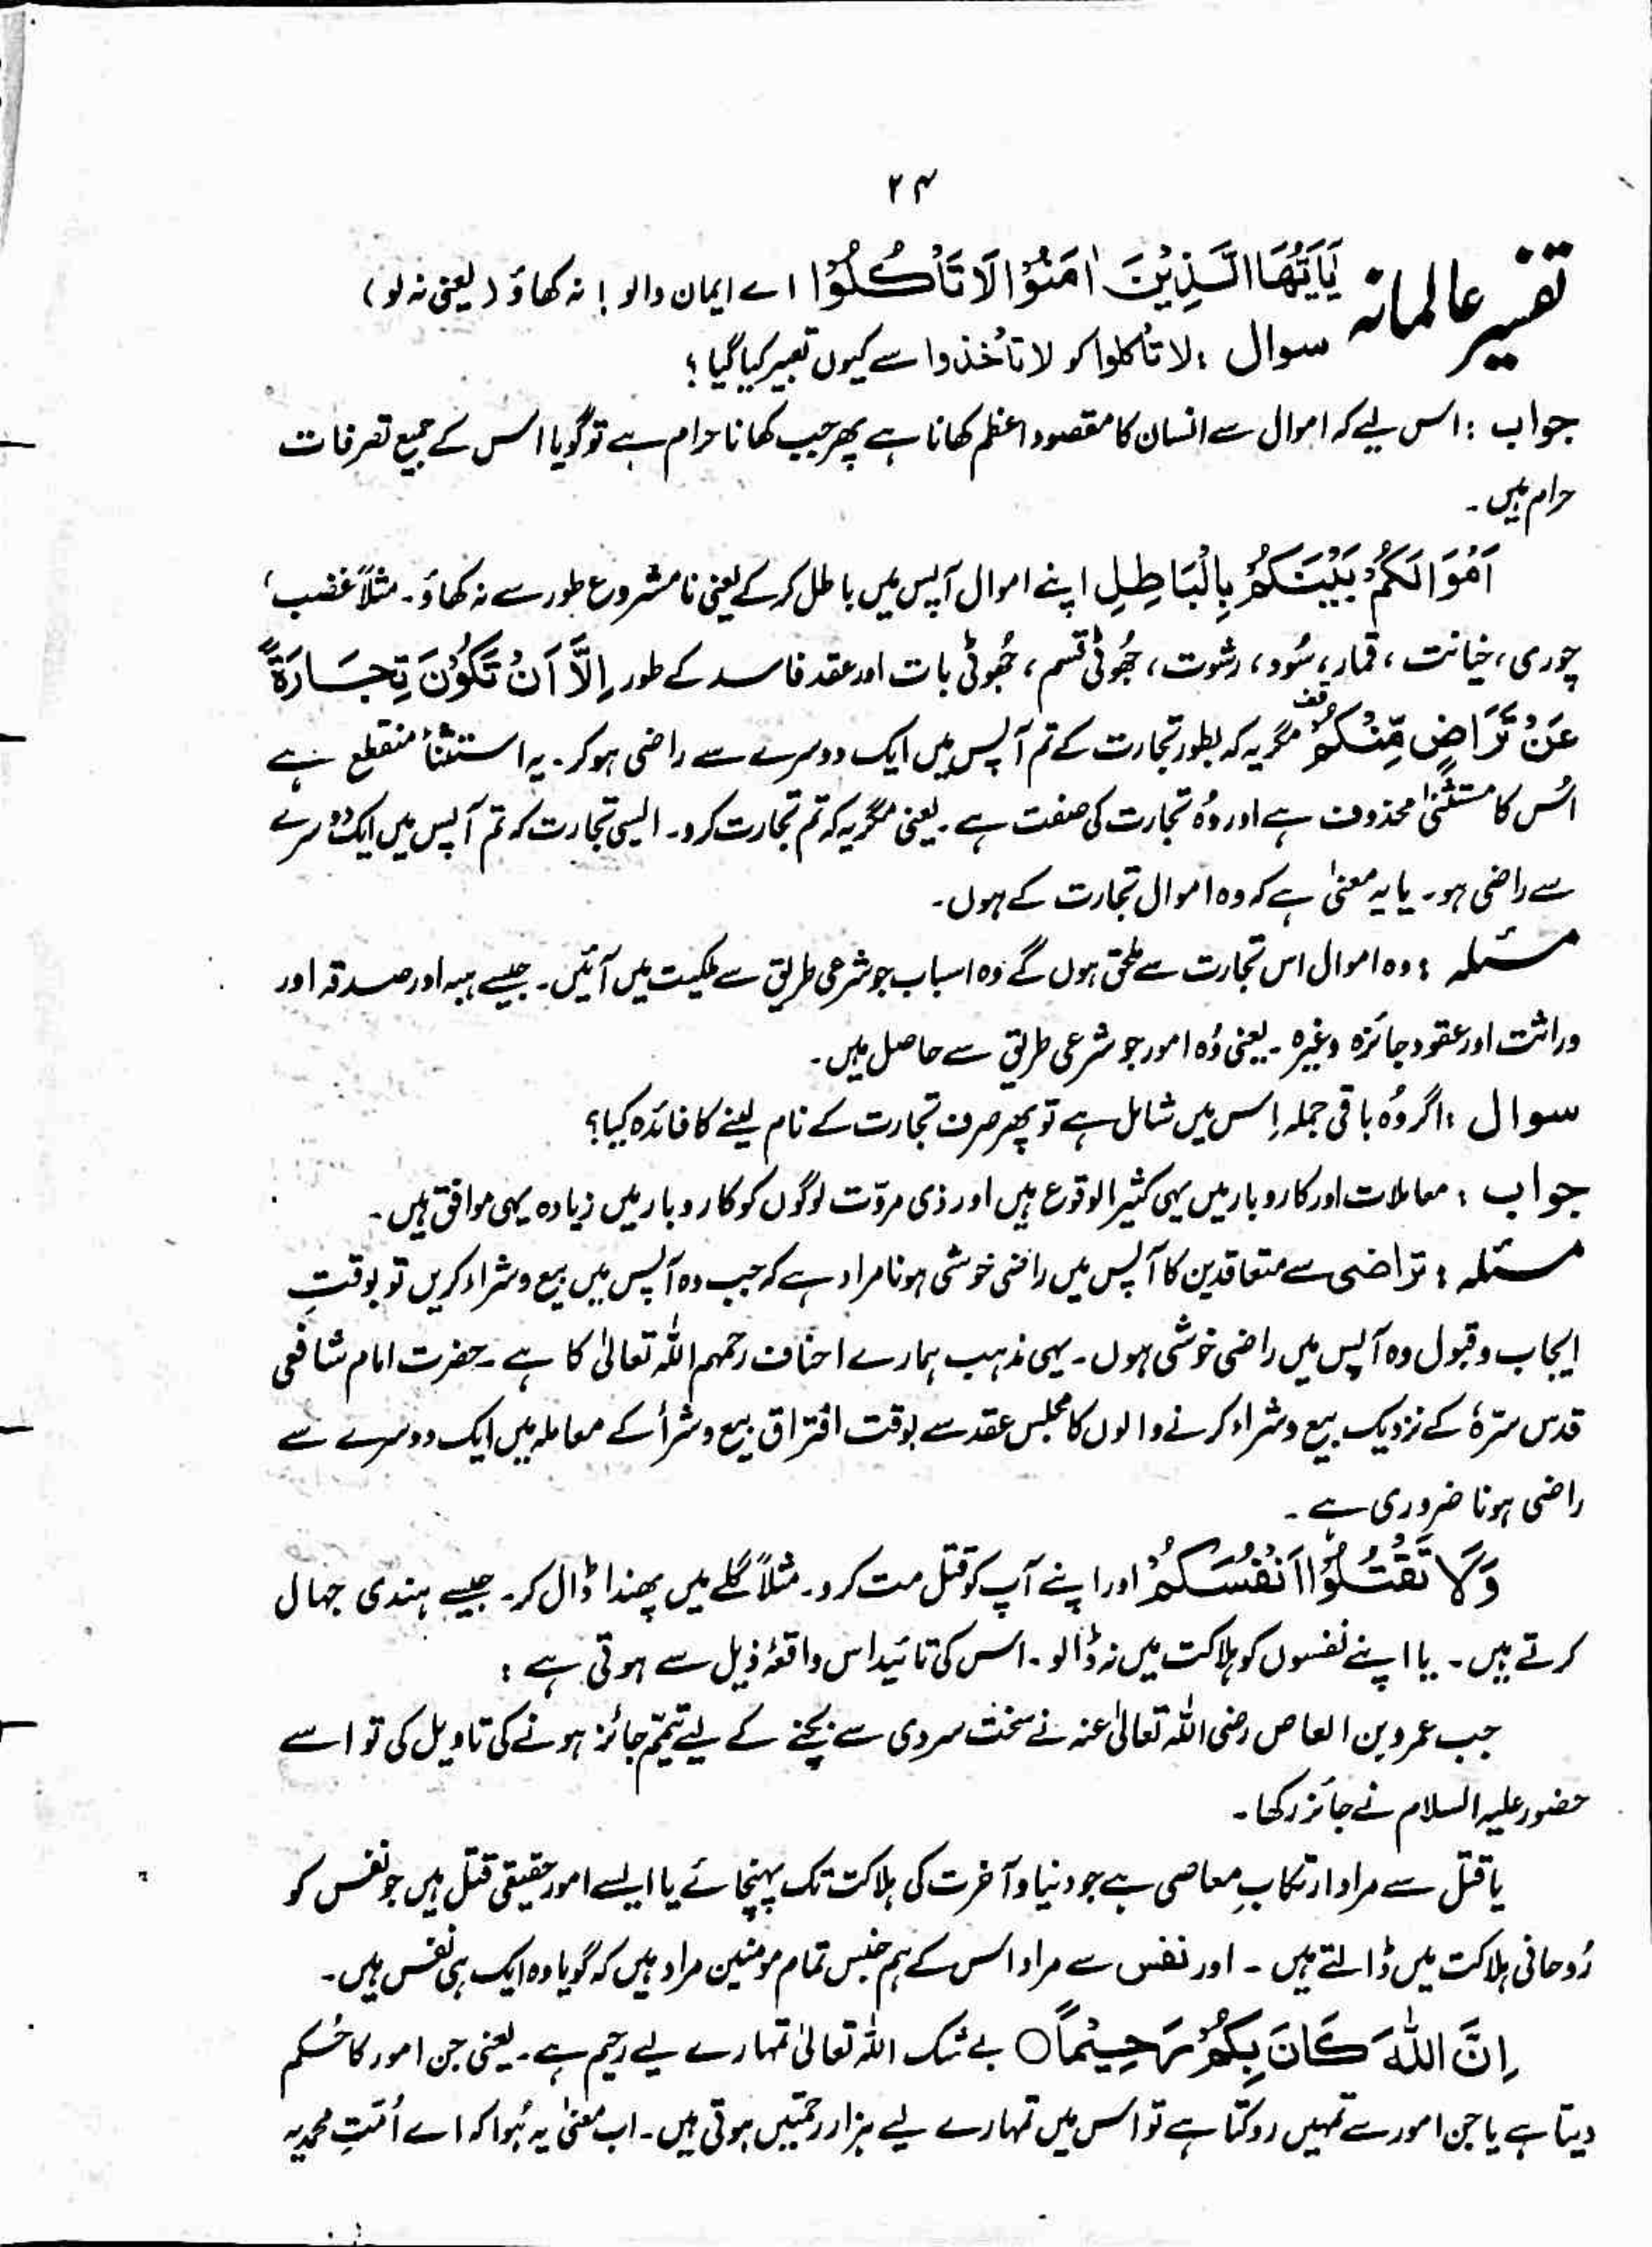 ۲۴
تفسیر عالمانہ یٰۤاَیُّهَا الَّذِیْنَ اٰمَنُوْا لَا تَاْكُلُوْۤا اے ایمان والو ! نہ کھاؤ ( یعنی نہ لو )
سوال : لا تأکلوا کو لا تأخذوا سے کیوں تعبیر کیا گیا ؟
جواب : اس لیے کہ اموال سے انسان کا مقصود اعظم کھانا ہے پھر جب کھانا حرام ہے تو گویا اس کے جمیع تصرفات
حرام ہیں ۔
اَمْوَالَكُمْ بَیْنَكُمْ بِالْبَاطِلِ اپنے اموال آپس میں باطل کر کے یعنی نامشروع طور سے نہ کھاؤ ۔ مثلاً غضب ،
چوری ، خیانت ، قمار ، سُود ، رشوت ، جُھوٹی قسم ، جُھوٹی بات اور عقد فاسد کے طور اِلَّاۤ اَنْ تَكُوْنَ تِجَارَةً
عَنْ تَرَاضٍ مِّنْكُمْ قف مگر یہ کہ بطور تجارت کے تم آپس میں ایک دوسرے سے راضی ہو کر ۔ یہ استثنأ منقطع ہے
اُس کا مستثنیٰ محذوف ہے اور وُہ تجارت کی صفت ہے ۔ یعنی مگر یہ کہ تم تجارت کرو ۔ ایسی تجارت کہ تم آپس میں ایک دوسرے
سے راضی ہو ۔ یا یہ معنیٰ ہے کہ وہ اموال تجارت کے ہوں ۔
مسئلہ : وہ اموال اس تجارت سے ملحق ہوں گے وہ اسباب جو شرعی طریق سے ملکیت میں آئیں ۔ جیسے ہبہ اور صدقہ اور
وراثت اور عقود جائزہ وغیرہ ۔ یعنی وُہ امور جو شرعی طریق سے حاصل ہیں ۔
سوال : اگر وُہ باقی جملہ اِس میں شامل ہے تو پھر صرف تجارت کے نام لینے کا فائدہ کیا ؟
جواب : معاملات اور کاروبار میں یہی کثیر الوقوع ہیں اور ذی مروّت لوگوں کو کاروبار میں زیادہ یہی موافق ہیں ۔
مسئلہ : تراضی سے متعاقدین کا آپس میں راضی خوشی ہونا مراد ہے کہ جب وہ آپس میں بیع و شراء کریں تو بوقتِ
ایجاب و قبول وہ آپس میں راضی خوشی ہوں ۔ یہی مذہب ہمارے احناف رحمہم اللہ تعالیٰ کا ہے ۔ حضرت امام شافعی
قدس سرّہٗ کے نزدیک بیع و شراء کرنے والوں کا مجلس عقد سے بوقت افتراق بیع و شرأ کے معاملہ میں ایک دوسرے سے
راضی ہونا ضروری ہے ۔
وَلَا تَقْتُلُوْۤا اَنْفُسَكُمْ اور اپنے آپ کو قتل مت کرو ۔ مثلاً گلے میں پھندا ڈال کر ۔ جیسے ہندی جہال
کرتے ہیں ۔ یا اپنے نفسوں کو ہلاکت میں نہ ڈالو ۔ اس کی تائید اس واقعۂ ذیل سے ہوتی ہے :
جب عمرو بن العاص رضی اللہ تعالیٰ عنہ نے سخت سردی سے بچنے کے لیے تیمّم جائز ہونے کی تاویل کی تو اسے
حضور علیہ السلام نے جائز رکھا ۔
یا قتل سے مراد ارتکابِ معاصی ہے جو دنیا و آخرت کی ہلاکت تک پہنچائے یا ایسے امور حقیقی قتل ہیں جو نفس کو
رُوحانی ہلاکت میں ڈالتے ہیں ۔ اور نفس سے مراد اس کے ہم جنس تمام مومنین مراد ہیں کہ گویا وہ ایک ہی نفس ہیں ۔
اِنَّ اللّٰهَ كَانَ بِكُمْ رَحِیْمًا ○ بے شک اللہ تعالیٰ تمہارے لیے رحیم ہے ۔ یعنی جن امور کا حُکم
دیتا ہے یا جن امور سے تمہیں روکتا ہے تو اس میں تمہارے لیے ہزار رحمتیں ہوتی ہیں ۔ اب معنیٰ یہ ہُوا کہ اے اُمّتِ محمدیہ